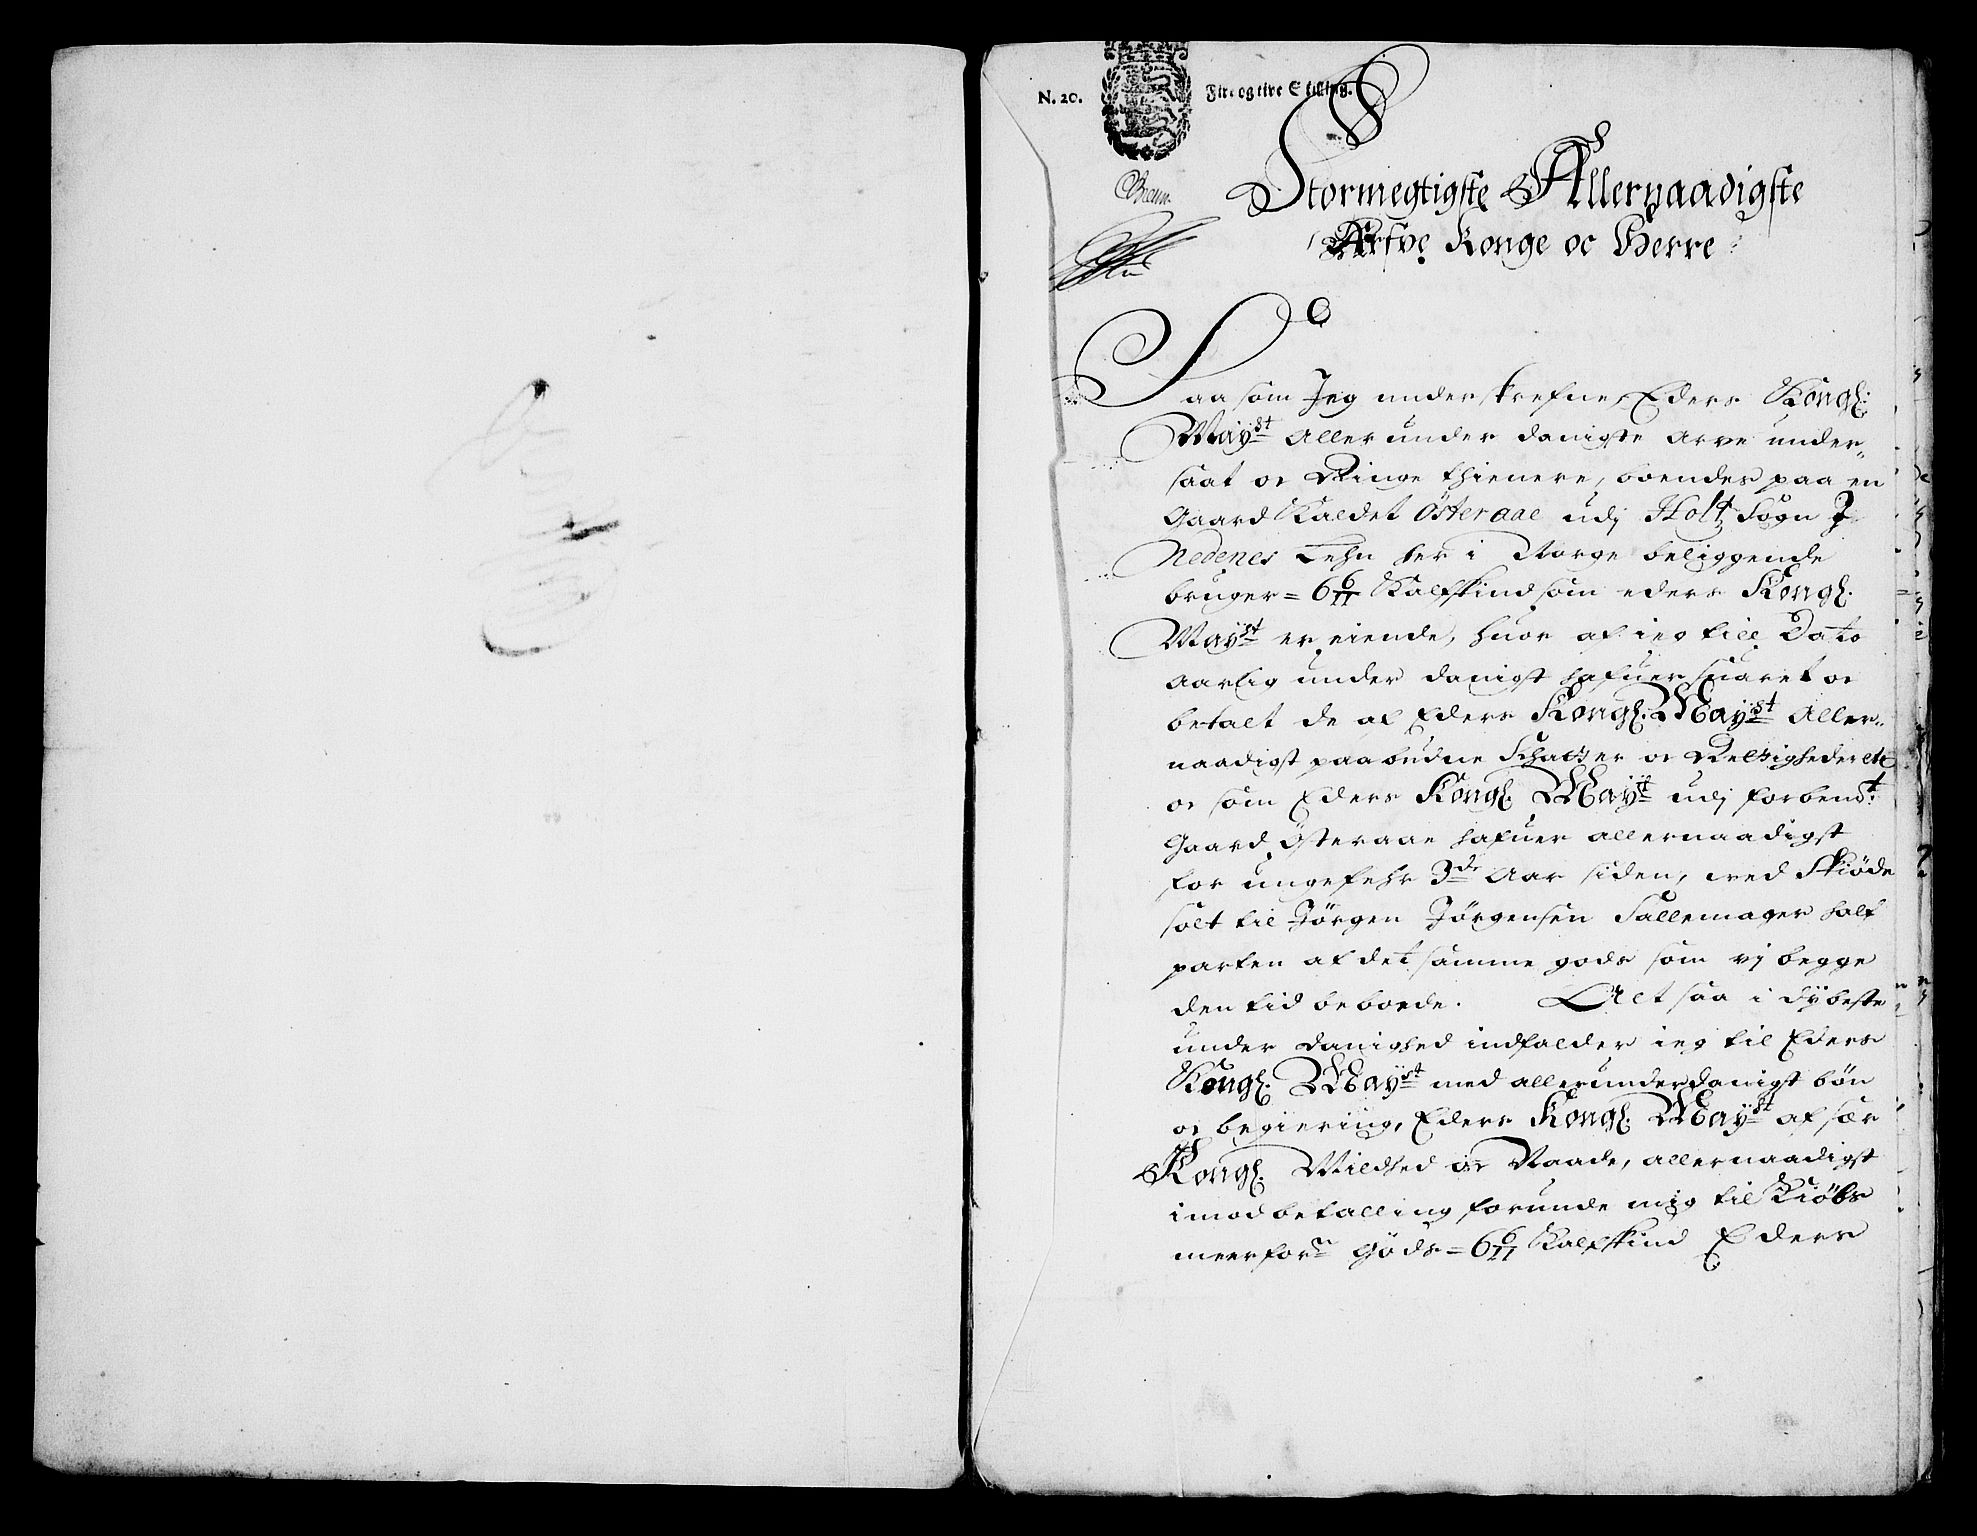 N. 20. Fire og tive Skilling.
Stormegtigste Allernaadigste
Arfve Konge oc Herre
Saa som Jeg underskrefne, Eders Kongl:
Mayst Allerunderdanigste Arve under-
saat oc Ringe thienere, boendes paa en
Gaard Kaldet Österaae udj Holt Sogn J
Nedenes Lehn her i Norge beliggende
bruger = 6 6/11 Kalfskind som eders Kongl.
Mayst er eiende, huor af ieg till Dato
Aarlig under danigst hafuer suaret oc
betalt de af Eders Kongl. Mayst Aller-
naadigst paabudne Schatter oc Retzigheder etc
oc som Eders Kongl. Mayst udj forbemt:
Gaard Österaae hafuer allernaadigst
for ungefehr 3de Aar siden, ved Skiöde
solt til Jörgen Jörgensen Sallemager half
parten af det samme gods som vj begge
den tid beboede. Alt saa i dÿbeste
under danighed indfalder ieg til Eders
Kongl. Mayst med allerunderdanigst bön
oc begiering, Eders Kongl. Mayst af sær
Kongl. Mildhed oc Naade, allernaadigst
imod betalling forunde mig til Kiöbs
meer forn Göds = 6 6/11 Kalfskind Eders